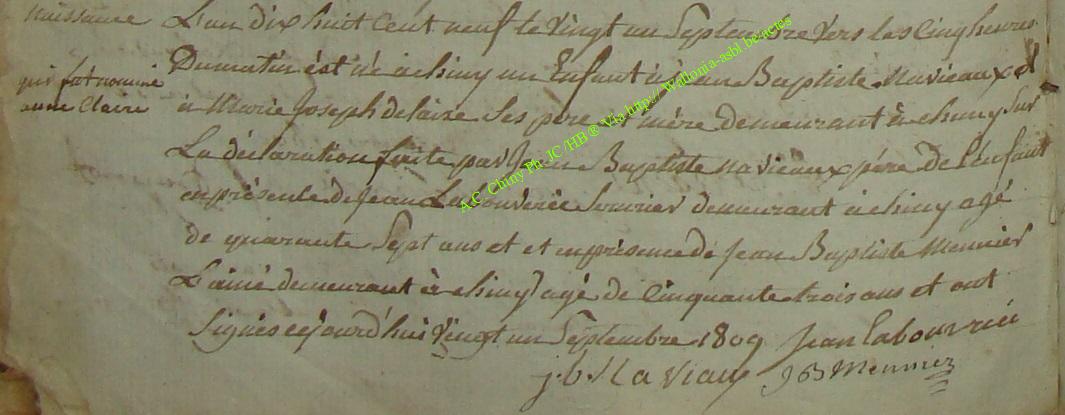 naissance
L'an dix huit Cent neuf le Vingt un Septembre Vers les Cinq heures
qui fut nommé
anne Claire
Du matin est né a chiny un Enfant à jean Baptiste Navieaux et
à Marie Joseph delaire Ses pere et mère demeurant à chiny Sur
La déclaration faite par Jean Baptiste navieaux père de l'enfant
en présence de Jean demeurant à chiny agé
de quarante Sept ans et et en présence de Jean Baptiste Meunier
L'ainé demeurant à chiny agé de Cinquante trois ans et ont
Signés cejourd'hui Vingt un Septembre 1809 Jean
j. b. Naviaux JB Meunier
A.C. Chiny Ph. JC /HB ® Via http:// Wallonia-asbl.be-actes